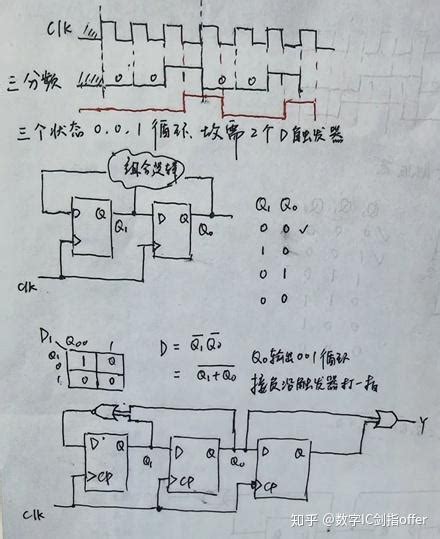 Clk
三分频 0 0 0 0
三个状态 0.0.1 循环、故需2个D触发器
组合逻辑
D Q Q1 D Q Q0
Clk
Q1 Q0
0 0 ✓
1 0
0 1
0 0
D1 Q0 0 1
Q1
0 1 0
1 0 0
D = Q̅1̅ Q̅0̅
= \overline{Q1+Q0}
Q0输出001循环
接负沿触发器打一拍
D Q Q1 D Q Q0 D Q Y
CP CP CP
Clk
知乎 @数字IC剑指offer